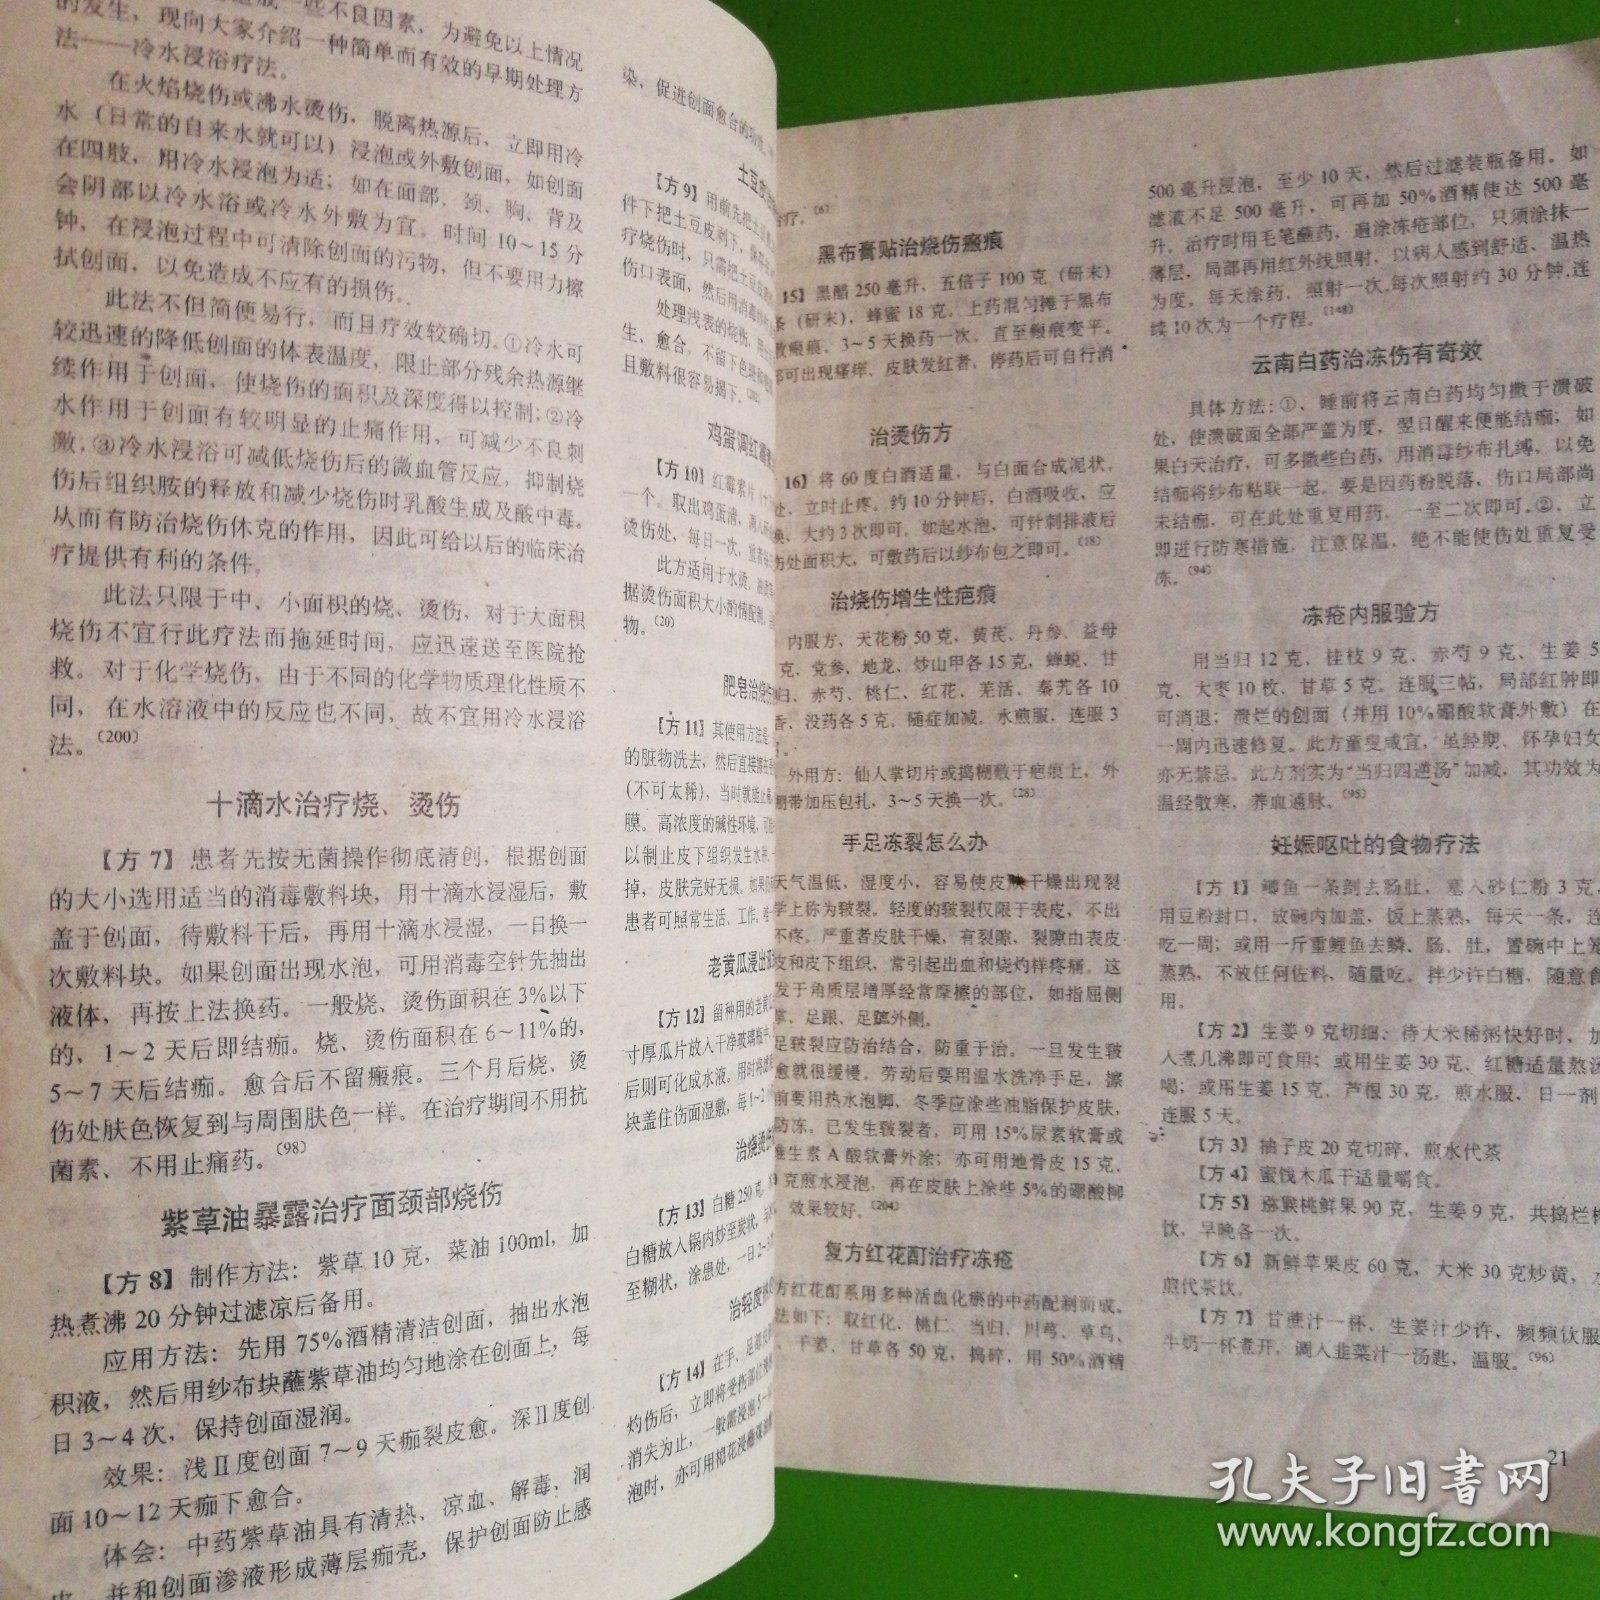 不良因素，为避免以上情况
的发生，现向大家介绍一种简单而有效的早期处理方
法——冷水浸浴疗法。
在火焰烧伤或沸水烫伤，脱离热源后，立即用冷
水（日常的自来水就可以）浸泡或外敷创面，如创面
在四肢，用冷水浸泡为适；如在面部、颈、胸、背及
会阴部以冷水浴或冷水外敷为宜。时间10～15分
钟，在浸泡过程中可清除创面的污物，但不要用力擦
拭创面，以免造成不应有的损伤。
此法不但简便易行，而且疗效较确切。①冷水可
较迅速的降低创面的体表温度，限止部分残余热源继
续作用于创面，使烧伤的面积及深度得以控制；②冷
水作用于创面有较明显的止痛作用，可减少不良刺
激，③冷水浸浴可减低烧伤后的微血管反应，抑制烧
伤后组织胺的释放和减少烧伤时乳酸生成及酸中毒。
从而有防治烧伤休克的作用，因此可给以后的临床治
疗提供有利的条件。
此法只限于中、小面积的烧、烫伤，对于大面积
烧伤不宜行此疗法而拖延时间，应迅速送至医院抢
救。对于化学烧伤，由于不同的化学物质理化性质不
同，在水溶液中的反应也不同，故不宜用冷水浸浴
法。（200）
十滴水治疗烧、烫伤
【方7】患者先按无菌操作彻底清创，根据创面
的大小选用适当的消毒敷料块，用十滴水浸湿后，敷
盖于创面，待敷料干后，再用十滴水浸湿，一日换一
次敷料块。如果创面出现水泡，可用消毒空针先抽出
液体，再按上法换药。一般烧、烫伤面积在3%以下
的，1～2天后即结痂。烧、烫伤面积在6～11%的，
5～7天后结痂。愈合后不留瘢痕。三个月后烧、烫
伤处肤色恢复到与周围肤色一样。在治疗期间不用抗
菌素、不用止痛药。（98）
紫草油暴露治疗面颈部烧伤
【方8】制作方法：紫草10克，菜油100ml，加
热煮沸20分钟过滤凉后备用。
应用方法：先用75%酒精清洁创面，抽出水泡
积液，然后用纱布块蘸紫草油均匀地涂在创面上，每
日3～4次，保持创面湿润。
效果：浅Ⅱ度创面7～9天痂裂皮愈。深Ⅱ度创
面10～12天痂下愈合。
体会：中药紫草油具有清热、凉血、解毒、润
并和创面渗液形成薄层痂壳，保护创面防止感
染，促进创面愈合的功效
土豆皮
【方9】用前先把土豆
件下把土豆皮剥下，
疗烧伤时，只需把土豆皮
伤口表面，然后用消毒
处理浅表的烧伤，
生、愈合，不留下色
且敷料很容易揭下。
鸡蛋调红霉素
【方10】红霉素片
一个。取出鸡蛋清，调
烫伤处，每日一次，
此方适用于水烫，油烫
据烫伤面积大小酌情配制，
物。（20）
肥皂治烧
【方11】其使用方法是
的脏物洗去，然后直接
（不可太稀），当时就能止
膜。高浓度的碱性环境，
以制止皮下组织发生水肿
掉，皮肤完好无损。如果
患者可照常生活、工作，
老黄瓜浸出
【方12】留种用的老黄
寸厚瓜片放入干净玻璃瓶中
后则可化成水液。用时将
块盖住伤面湿敷，每1～2
治烧烫
【方13】白糖250克，
白糖放入锅内炒至炭状，
至糊状，涂患处，一日2～3
治轻度
【方14】在手、足部
灼伤后，立即将受伤部位
消失为止，一般需浸泡
泡时，亦可用棉花浸
治疗。（6）
黑布膏贴治烧伤瘢痕
15】黑醋250毫升，五倍子100克（研末）
条（研末），蜂蜜18克。上药混匀摊于黑布
敷瘢痕。3～5天换药一次。直至瘢痕变平。
部可出现瘙痒、皮肤发红者，停药后可自行消
治烫伤方
16】将60度白酒适量，与白面合成泥状，
处，立时止疼。约10分钟后，白酒吸收，应
换，大约3次即可。如起水泡，可针刺排液后
伤处面积大，可敷药后以纱布包之即可。（18）
治烧伤增生性疤痕
内服方，天花粉50克，黄芪、丹参、益母
克，党参、地龙、炒山甲各15克，蝉蜕、甘
归、赤芍、桃仁、红花、羌活、秦艽各10
香、没药各5克。随症加减。水煎服，连服3
外用方：仙人掌切片或捣糊敷于疤痕上，外
绷带加压包扎，3～5天换一次。（28）
手足冻裂怎么办
天气温低，湿度小，容易使皮肤干燥出现裂
学上称为皲裂。轻度的皲裂仅限于表皮，不出
不疼。严重者皮肤干燥，有裂隙，裂隙由表皮
皮和皮下组织，常引起出血和烧灼样疼痛。这
发于角质层增厚经常摩擦的部位，如指屈侧
掌、足跟、足蹠外侧。
足皲裂应防治结合，防重于治。一旦发生皲
愈就很缓慢。劳动后要用温水洗净手足，擦
前要用热水泡脚、冬季应涂些油脂保护皮肤，
防冻。已发生皲裂者，可用15%尿素软膏或
维生素A酸软膏外涂；亦可用地骨皮15克、
克煎水浸泡，再在皮肤上涂些5%的硼酸柳
效果较好。（204）
复方红花酊治疗冻疮
方红花酊系用多种活血化瘀的中药配制而成。
法如下：取红化、桃仁、当归、川芎、草乌、
、干姜、甘草各50克，捣碎，用50%酒精
500毫升浸泡，至少10天，然后过滤装瓶备用。如
滤液不足500毫升，可再加50%酒精使达500毫
升。治疗时用毛笔蘸药，遍涂冻疮部位，只须涂抹一
薄层，局部再用红外线照射，以病人感到舒适、温热
为度。每天涂药、照射一次。每次照射约30分钟，连
续10次为一个疗程。（148）
云南白药治冻伤有奇效
具体方法：①、睡前将云南白药均匀撒于溃破
处，使溃破面全部严盖为度，翌日醒来便能结痂，如
果白天治疗，可多撒些白药，用消毒纱布扎缚，以免
结痂将纱布粘联一起。要是因药粉脱落，伤口局部尚
未结痂，可在此处重复用药，一至二次即可。②、立
即进行防寒措施，注意保温，绝不能使伤处重复受
冻。（94）
冻疮内服验方
用当归12克、桂枝9克、赤芍9克、生姜5
克、大枣10枚、甘草5克。连服三帖，局部红肿即
可消退；溃烂的创面（并用10%硼酸软膏外敷）在
一周内迅速修复。此方童叟咸宜，虽经期、怀孕妇女
亦无禁忌。此方剂实为“当归四逆汤”加减，其功效为
温经散寒，养血通脉。（95）
妊娠呕吐的食物疗法
【方1】鲫鱼一条剖去肠肚，塞入砂仁粉3克，
用豆粉封口，放碗内加盖，饭上蒸熟，每天一条，连
吃一周；或用一斤重鲤鱼去鳞、肠、肚，置碗中上笼
蒸熟，不放任何佐料，随量吃。拌少许白糖，随意食
用。
【方2】生姜9克切细，待大米稀粥快好时，加
入煮几沸即可食用；或用生姜30克、红糖适量熬汤
喝；或用生姜15克、芦根30克，煎水服，日一剂
连服5天。
【方3】柚子皮20克切碎，煎水代茶
【方4】蜜饯木瓜干适量嚼食。
【方5】猕猴桃鲜果90克，生姜9克，共捣烂
饮，早晚各一次。
【方6】新鲜苹果皮60克，大米30克炒黄，水
煎代茶饮。
【方7】甘蔗汁一杯，生姜汁少许，频频饮服
牛奶一杯煮开，调入韭菜汁一汤匙，温服。（96）
21
孔夫子旧书网
www.kongfz.com